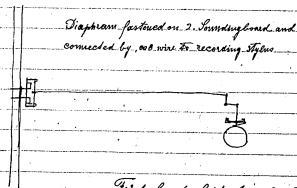 Diaphram fastened on 2. Soundingboard and
connected by .008 wire to recording stylus